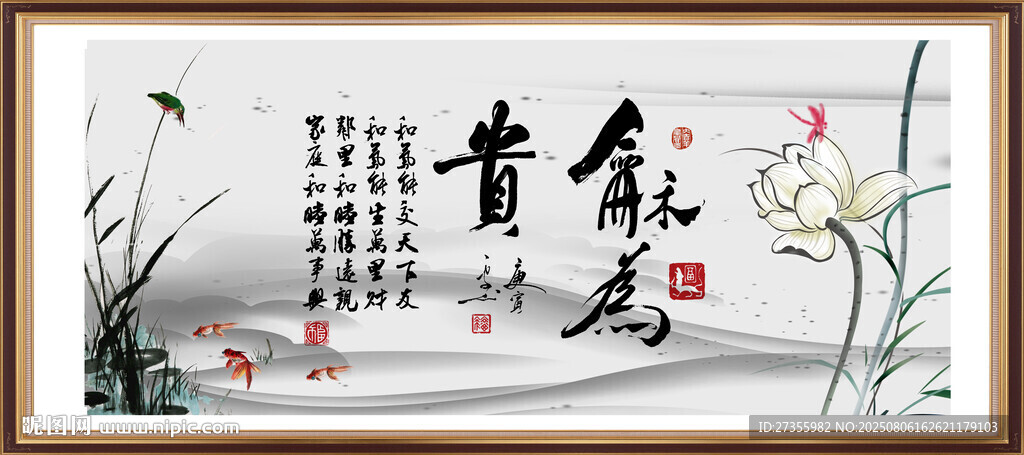 龢為
貴
庚寅
和氣能交天下友
和氣能生萬里財
鄰里和睦勝遠親
家庭和睦萬事興
昵图网 www.nipic.com
ID:27355982 NO:20250806162621179103